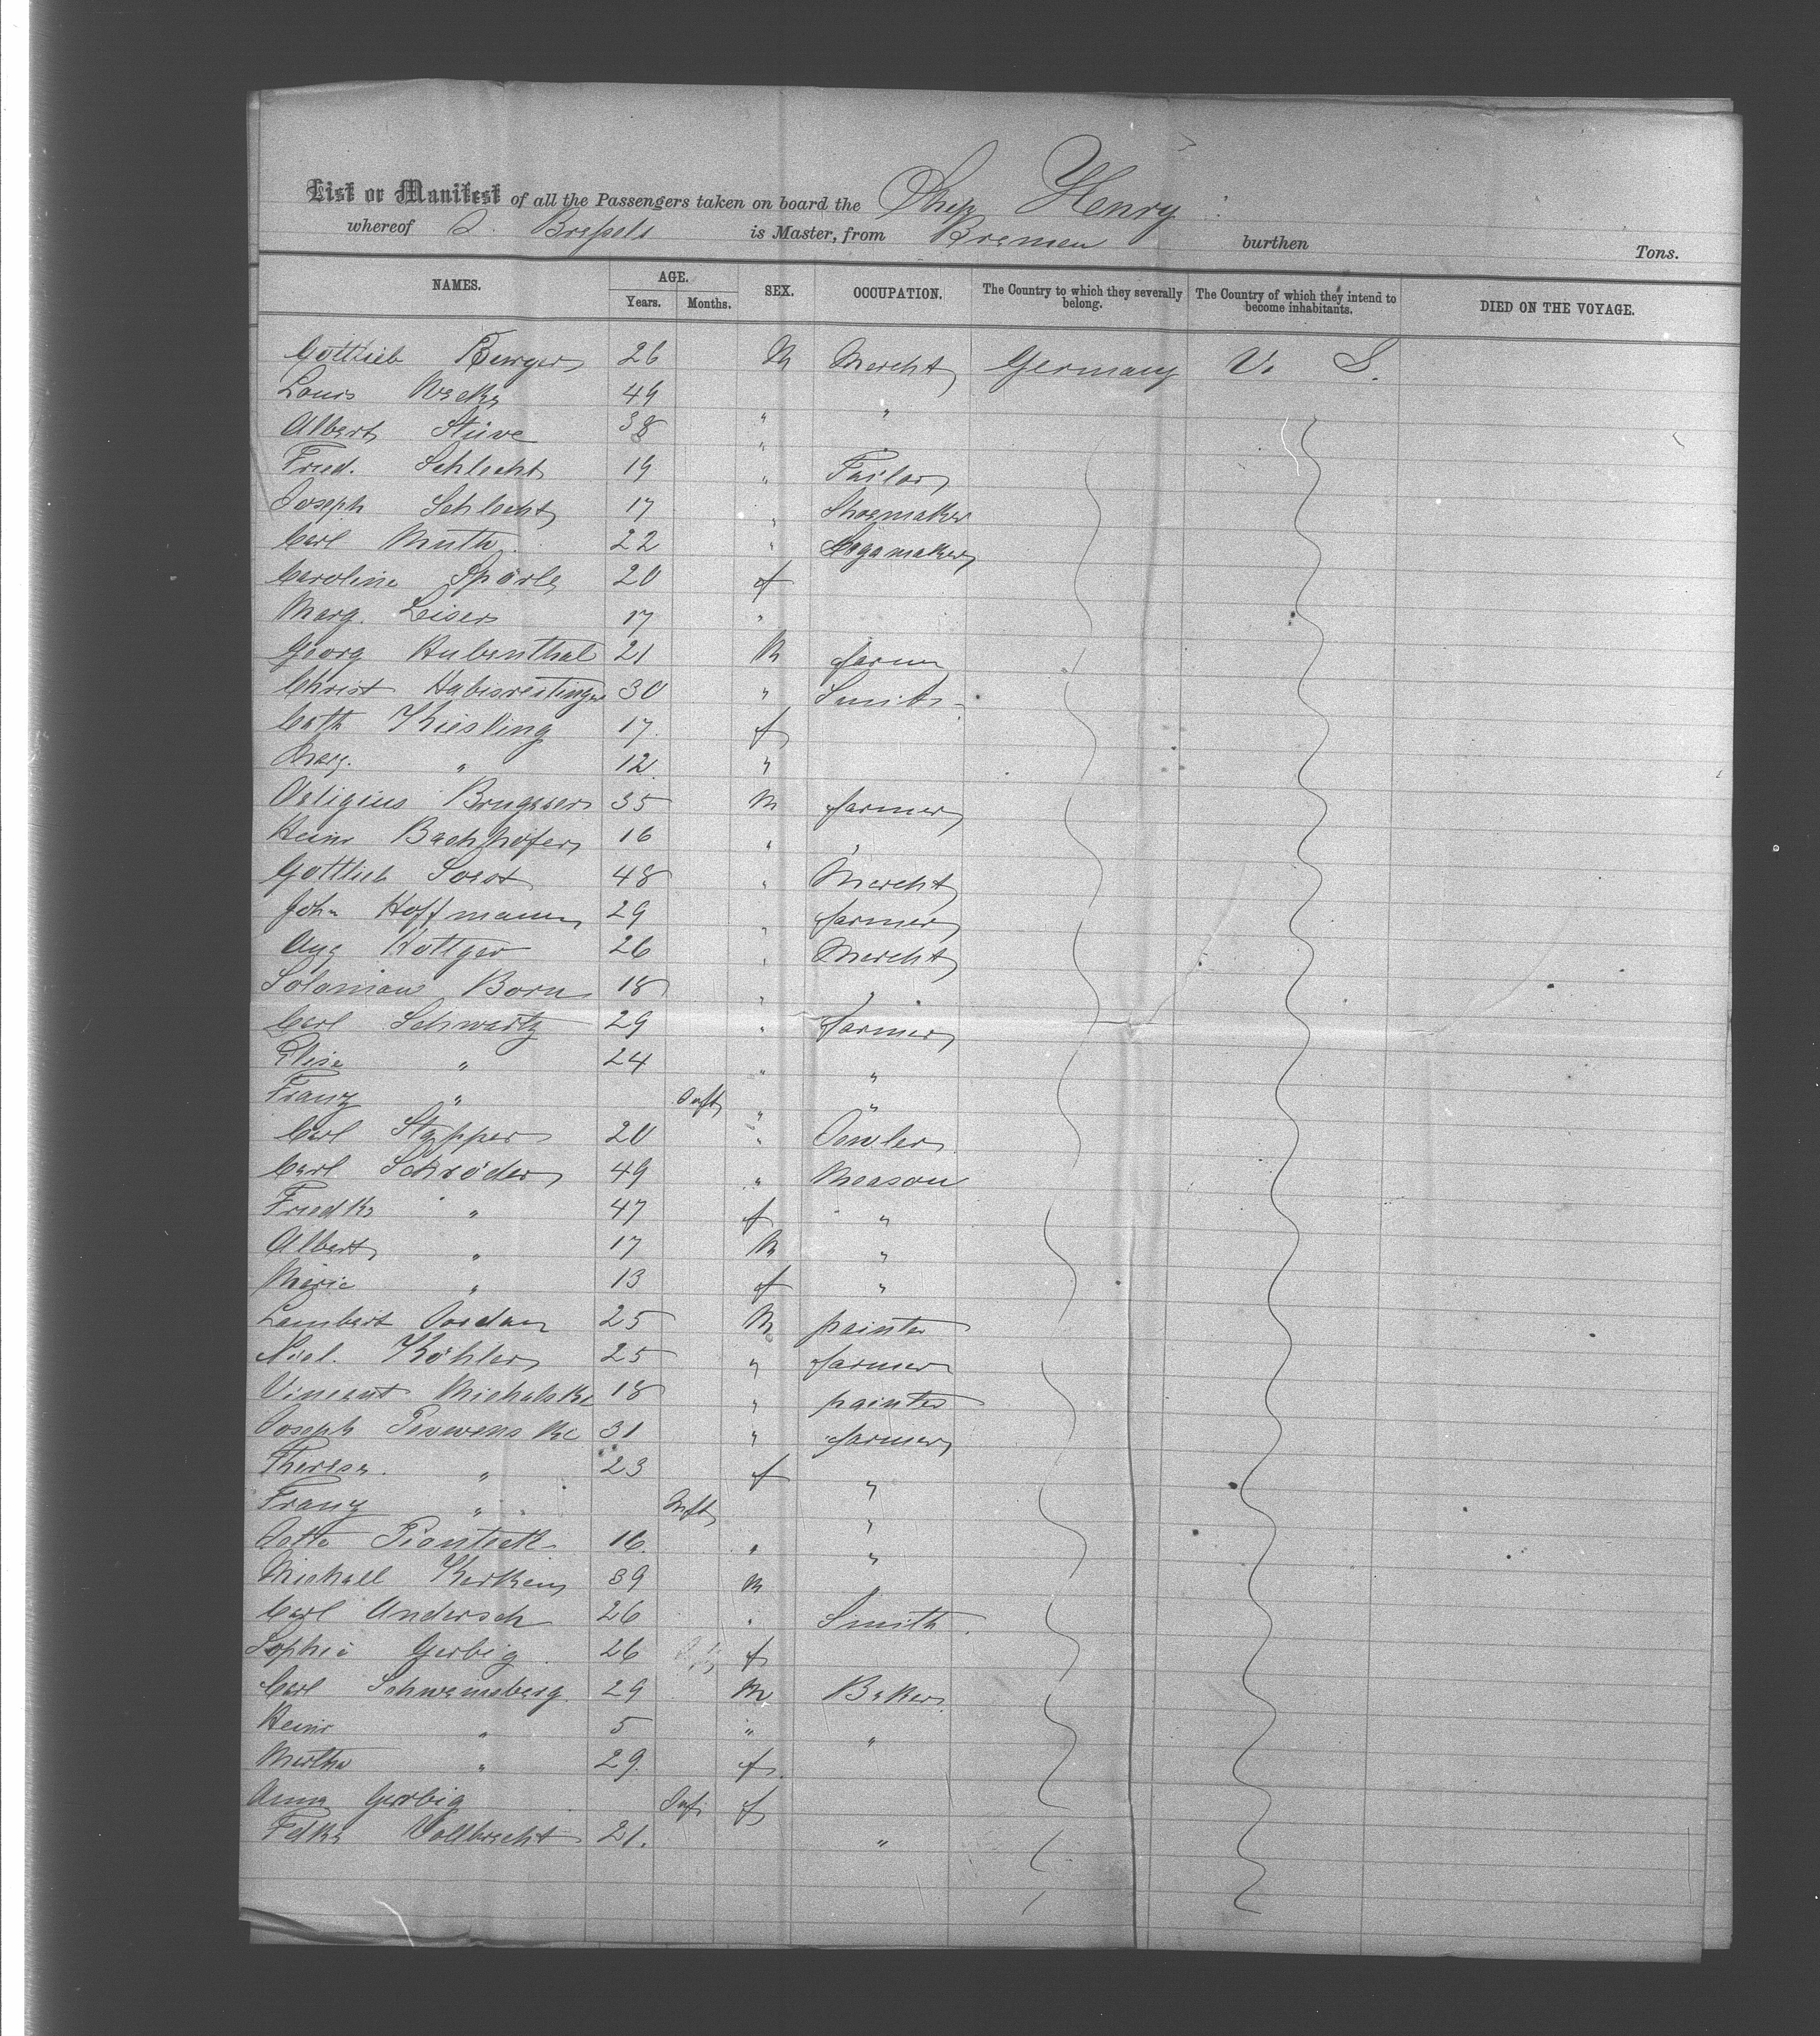 List or Manifest of all the Passengers taken on board the Ship Henry
whereof is Master, from Bremen burthen Tons.
NAMES. AGE. Years. Months. SEX. OCCUPATION. The Country to which they severally belong. The Country of which they intend to become inhabitants. DIED ON THE VOYAGE.
Gottlieb Berger 26 M Mercht Germany U. S.
Louis 49 " "
Albert Stüve 38 "
Fried. Schlecht 19 " Tailor
Joseph Schlecht 17 " Shoemaker
Carl Muth 22 "
Caroline Spörle 20 f
Marg. Leiser 17 "
Georg Hubenthal 21 M farmer
Christ 30 " Smith
Cath Kiesling 17 f
Marg. " 12 "
Brugger 35 M farmer
Heinr Bachhöfer 16 " "
Gottlieb Soest 48 " Mercht
John Hoffmann 29 " farmer
Aug Kottger 26 " Mercht
Solomon Born 18 " "
Carl Schwartz 29 " farmer
Elise " 24 " "
Franz " Inft " "
Carl Stapper 20 "
Carl Schröder 49 " Meason
Friedke " 47 f "
Albert " 17 M "
Marie " 13 f "
Lambert Jordan 25 M painter
Köhler 25 " farmer
Vincent Michalske 18 " painter
Joseph 31 " farmer
Therese " 23 f "
Franz " Inft "
16 " "
Michael 39 M
Carl Andersch 26 " Smith
Sophie Gerbig 26 f
Carl Schwamsberg 29 M Baker
Heinr " 5 " "
Martha " 29 f
Anna Gerbig Inf f
Fdke Vollbrecht 21. "